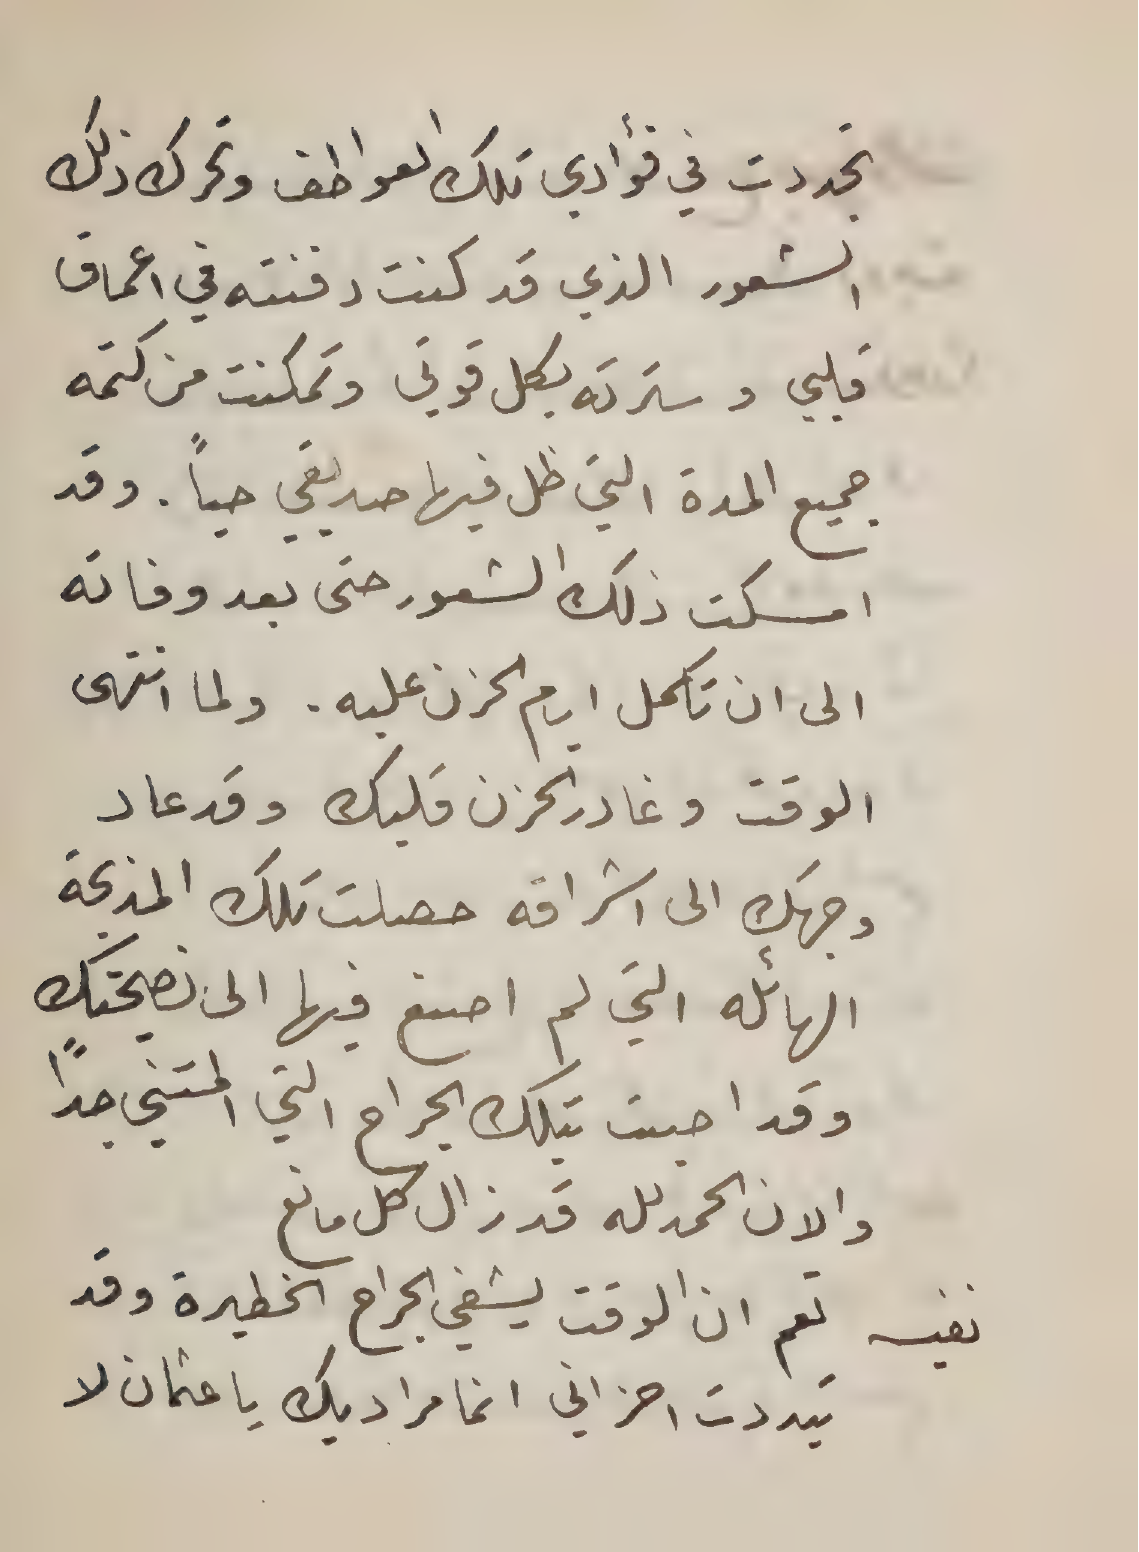 تجددت في فؤادي تلك العواطف وتحرك ذلك
الشعور الذي قد كنت دفنته في اعماق
قلبي وسترته بكل قوتي وتمكنت من كتمه
جميع المدة التي ظل فيها صديقي حياً . وقد
امسكت ذلك الشعور حتى بعد وفاته
الى ان تكمل ايام الحزن عليه . ولما انتهى
الوقت وغادر الحزن قلبك وقد عاد
وجهك الى اشراقه حصلت تلك المذبحة
الهائله التي لم اصنع فيها الى نصيحتك
وقد اصبت بتلك الجراح التي المتني جداً
والان الحمد لله قد زال كل مانع
نفيسه نعم ان الوقت يشفي الجراح الخطيرة وقد
تبددت احزاني انما مراديك يا عثمان لا